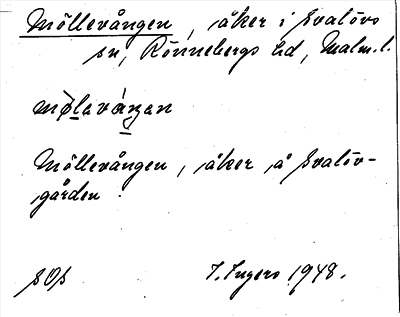 Möllevången, åker i Svalövs
sn, Rönnebergs hd, Malm. l.
mølavåŋan
Möllevången, åker å Svalöv-
gården.
I. Ingers 1948.